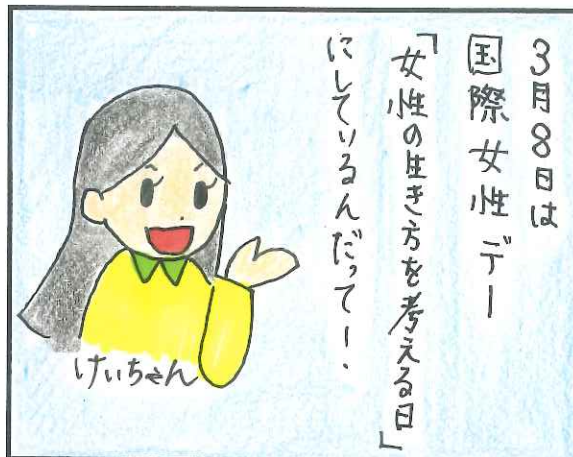 3月8日は
国際女性デー
「女性の生き方を考える日」
にしているんだってー.
けいちゃん